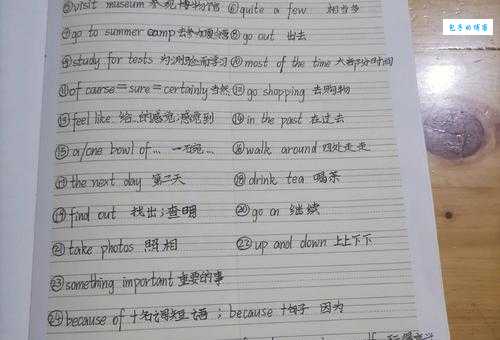 ⑤visit museum 参观博物馆 ⑥quite a few 相当多
⑦go to summer camp去参加夏令营 ⑧go out 出去
⑨study for tests 为测验而学习 ⑩most of the time 大部分时间
⑪of course=sure=certainly当然 ⑫go shopping 去购物
⑬feel like 给...的感觉;感觉到 ⑭in the past 在过去
⑮a/one bowl of... 一碗... ⑯walk around 四处走走
⑰the next day 第二天 ⑱drink tea 喝茶
⑲find out 找出;查明 ⑳go on 继续
㉑take photos 照相 ㉒up and down 上上下下
㉓something important 重要的事
㉔because of +名词短语 ; because +句子 因为
包手的博客